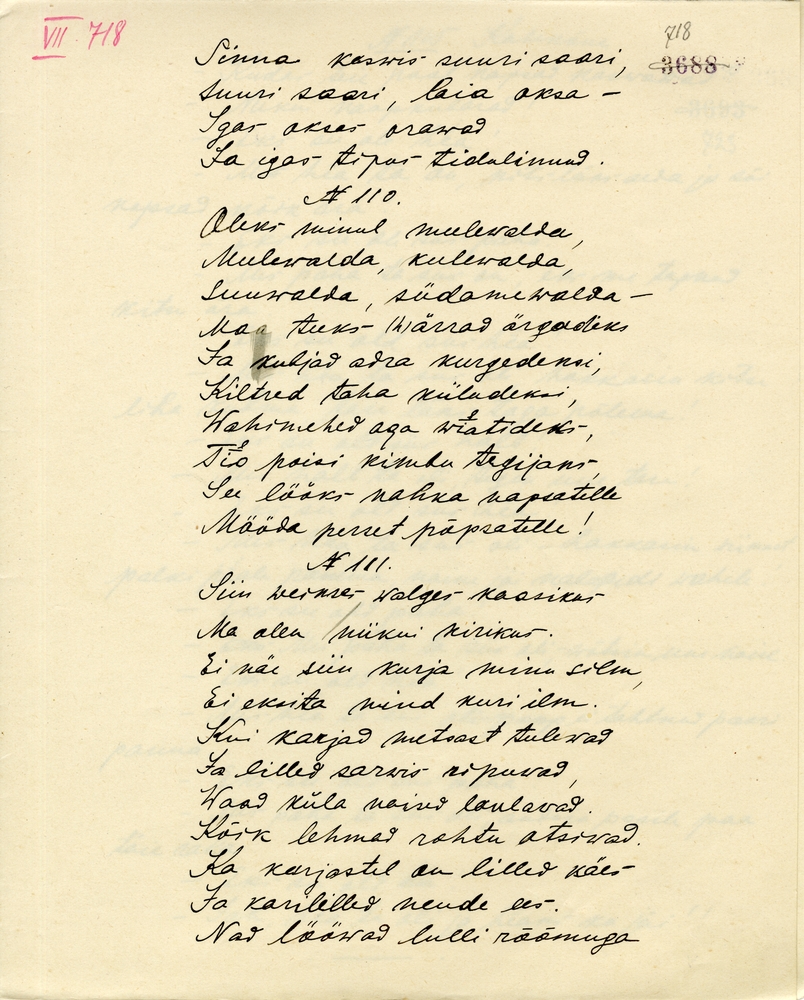 VII 718
718
3688
Sinna kaswis suuri saari,
Suuri saari, laia oksa –
Igas oksas orawad
Ja igas tipus tidulinnud.
N 110.
Oleks minul meelewalda,
Meelewalda, keelewalda,
Suuwalda, südamewalda –
Maa teeks (h)ärrad örgadeks
Ja kubjad adra kurgedensi,
Kiltred taha küladeksi,
Wahimehed aga wiatideks,
Tio poisi kimbu tegijans,
See lööks nahka napsatelle
Mööda perset põpsatelle!
N 111.
Siin weikses walges kaasikus
Ma olen niikui kirikus.
Ei näe siin kurja minu silm,
Ei eksita mind kuri ilm.
Kui karjad metsast tulewad
Ja lilled sarwis ripuwad,
Waad küla naised laulawad.
Kõik lehmad rohtu otsiwad.
Ka karjastel on lilled käes
Ja karililled nende ees.
Nad lööwad lulli rõõmuga